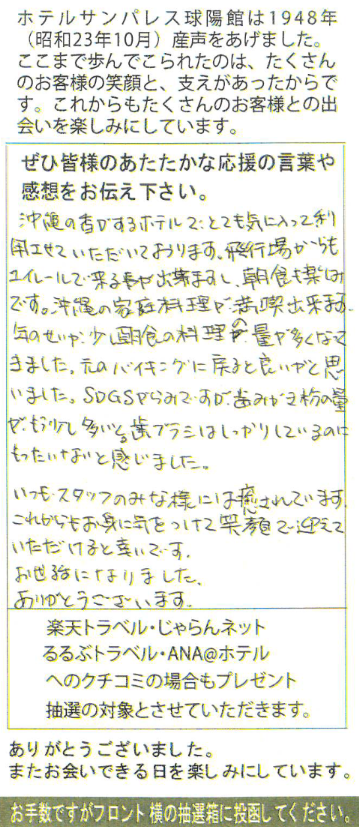 ホテルサンパレス球陽館は1948年
（昭和23年10月）産声をあげました。
ここまで歩んでこられたのは、たくさん
のお客様の笑顔と、支えがあったからで
す。これからもたくさんのお客様との出
会いを楽しみにしています。
ぜひ皆様のあたたかな応援の言葉や
感想をお伝え下さい。
沖縄の香がするホテルでとても気に入って利
用させていただいております。飛行場からも
ユイレールで来る事が出来ますし、朝食も楽しみ
です。沖縄の家庭料理が満喫出来ます。
気のせいか少し朝食の料理の量が多くなって
きました。元のバイキングに戻ると良いがと思
いました。SDGSからみですが歯みがき粉の量
がもう少し多いと。歯ブラシはしっかりしているのに
もったいないと感じました。
いつもスタッフのみな様には癒されています。
これからもお身に気をつけて笑顔で迎えて
いただけると幸いです。
お世話になりました。
ありがとうございます。
楽天トラベル・じゃらんネット
るるぶトラベル・ANA@ホテル
へのクチコミの場合もプレゼント
抽選の対象とさせていただきます。
ありがとうございました。
またお会いできる日を楽しみにしています。
お手数ですがフロント横の抽選箱に投函してください。